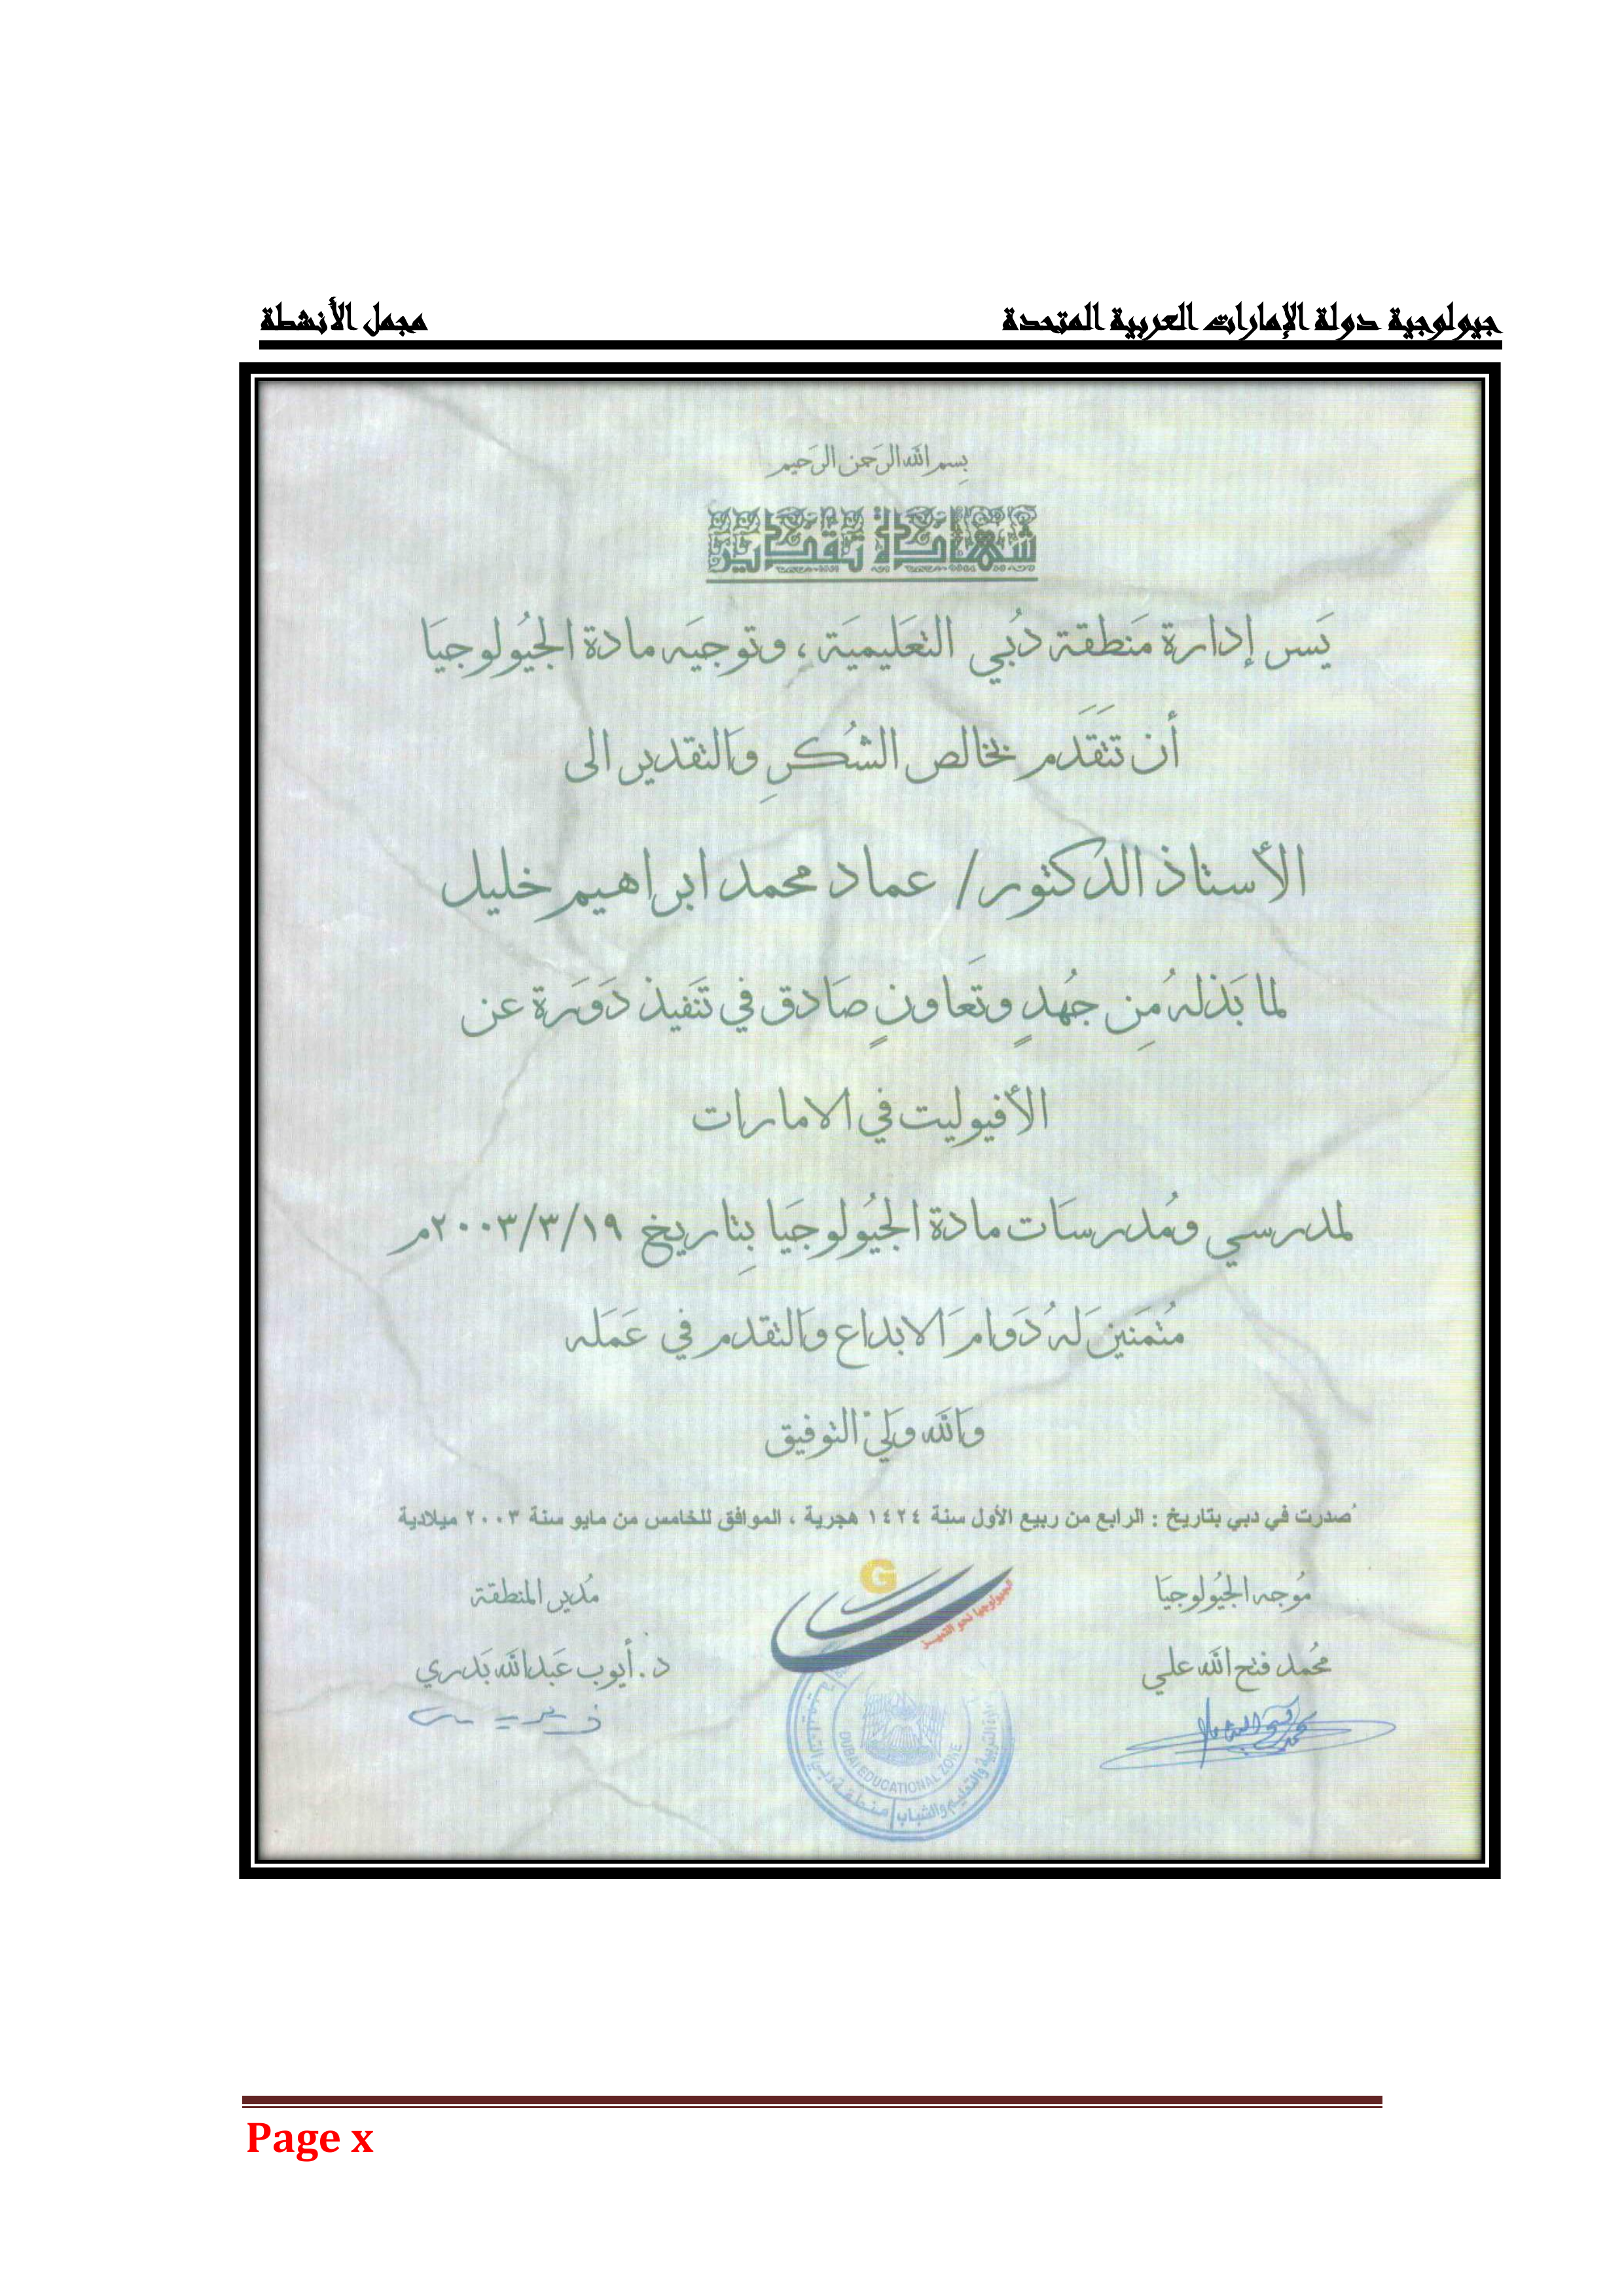 جيولوجية دولة الإمارات العربية المتحدة مجمل الأنشطة
بِسم الله الرَحمن الرَحيم
شهادة تقدير
يَسر إدارة مَنطقة دُبي التعَليميَة ، وتوجيَه مادة الجيُولوجيَا
أن تتَقَدَم بخالص الشُكرِ وَالتقدير الى
الأستاذ الدكتور/ عماد محمد ابراهيم خليل
لما بَذلهُ مِن جُهدٍ وتَعَاونٍ صَادق في تَنفيذ دَورَة عن
الأفيوليت في الامارات
لمدرسي ومُدرسَات مادة الجيُولوجيَا بِتاريخ ١٩/٣/٢٠٠٣م
مُتمَنين لَهُ دَوام الابداع وَالتقدم في عَمَله
وَالله وَلي التوفيق
صدرت في دبي بتاريخ : الرابع من ربيع الأول سنة ١٤٢٤ هجرية ، الموافق للخامس من مايو سنة ٢٠٠٣ ميلادية
مُوجه الجيُولوجيَا
مُدير المنطقة
G
الجيولوجيا نحو التميز
محُمد فتح الله علي
د. أيوب عَبد الله بَدري
DUBAI EDUCATIONAL ZONE
وزارة التربية والتعليم والشباب
منطقة دبي التعليمية
Page x